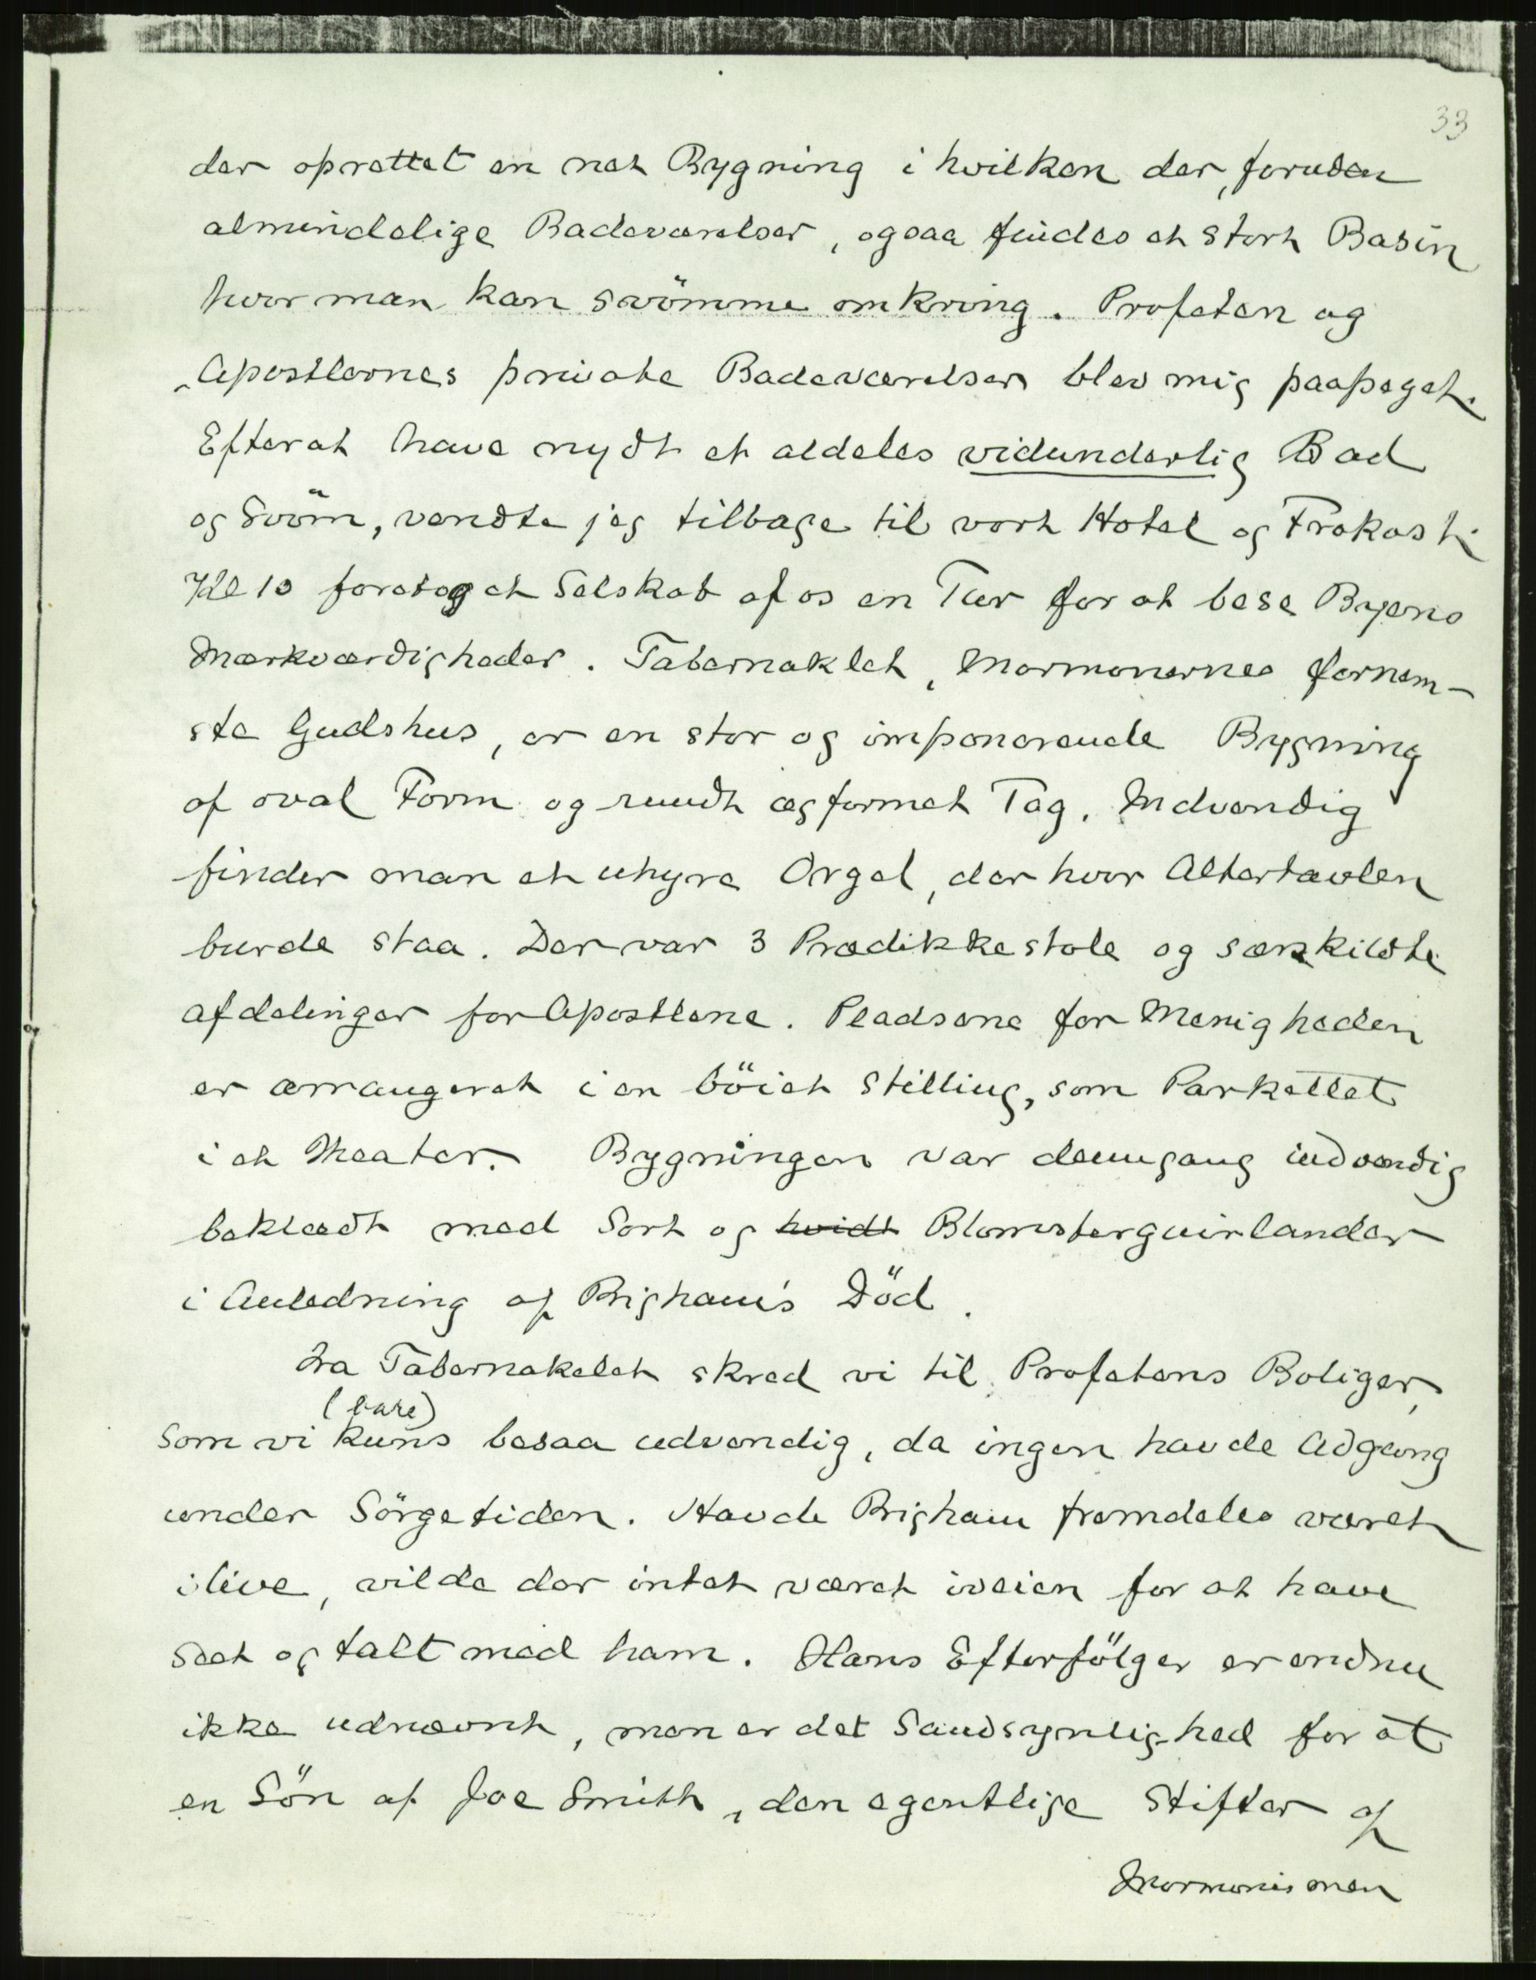 33
der oprettet en net Bygning i hvilken der, foruden
almindelige Badeværelser, ogsaa findes et stort Basin
hvor man kan svömme omkring. Profeten og
Apostlernes private Badeværelser blev mig paapeget.
Efter at have nydt et aldeles vidunderlig Bad
og Svöm, vendte jeg tilbage til vort Hotel og Frokost.
Kl 10 foretog et Selskab af os en Tur for at bese Byens
Mærkværdigheder. Tabernaklet, Mormonernes fornem-
ste Gudshus, er en stor og imponerende Bygning
af oval Form og rundt ægformet Tag. Indvendig
finder man et uhyre Orgel, der hvor Altertavlen
burde staa. Der var 3 Prædikkestole og særskildte
afdelinger for Apostlene. Pladsene for Menigheden
er arrangeret i en böiet Stilling, som Parkettet
i et Theater. Bygningen var dengang indvendig
beklædt med Sort og hvidt Blomsterguirlander
i Anledning af Brigham's Död.
Fra Tabernakelet skred vi til Profetens Boliger,
(bare)
som vi kuns besaa udvendig, da ingen havde Adgang
under Sörgetiden. Havde Brigham fremdeles været
ilive, vilde der intet været iveien for at have
seet og talt med ham. Hans Efterfölger er endnu
ikke udnævnt, men er det Sandsynlighed for at
en Sön af Joe Smith, den egentlige Stifter af
Mormonismen